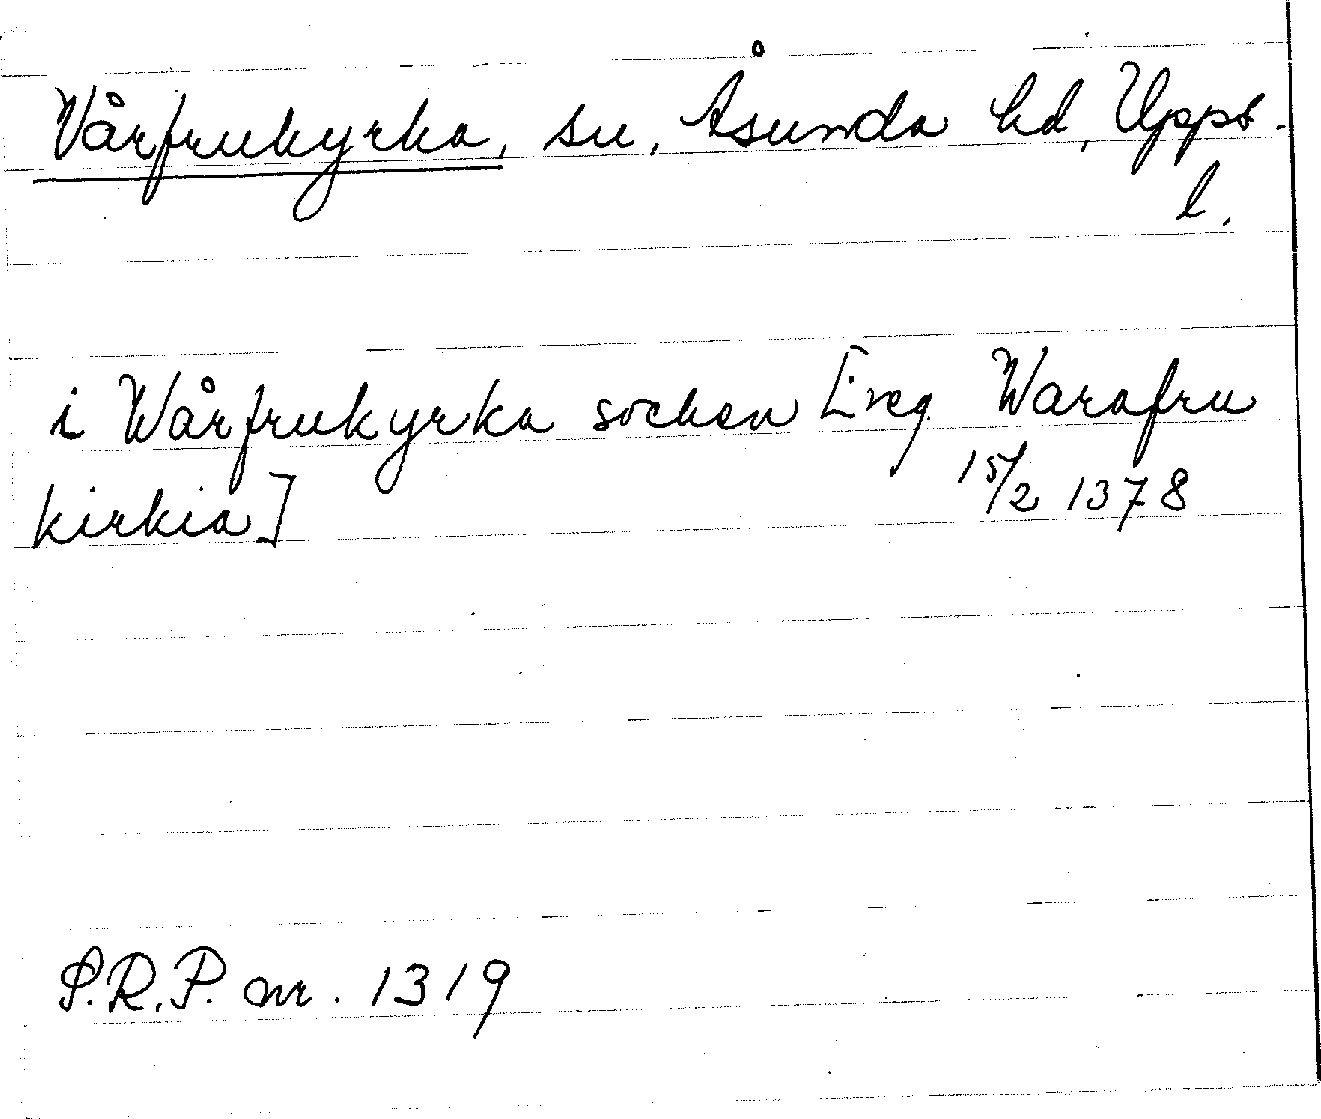 Vårfrukyrka, sn, Åsunda hd, Upps.
l.
i Wårfrukyrka socken [reg. Warafru
kirkia] 15/2 1378
S.R.P. nr. 1319